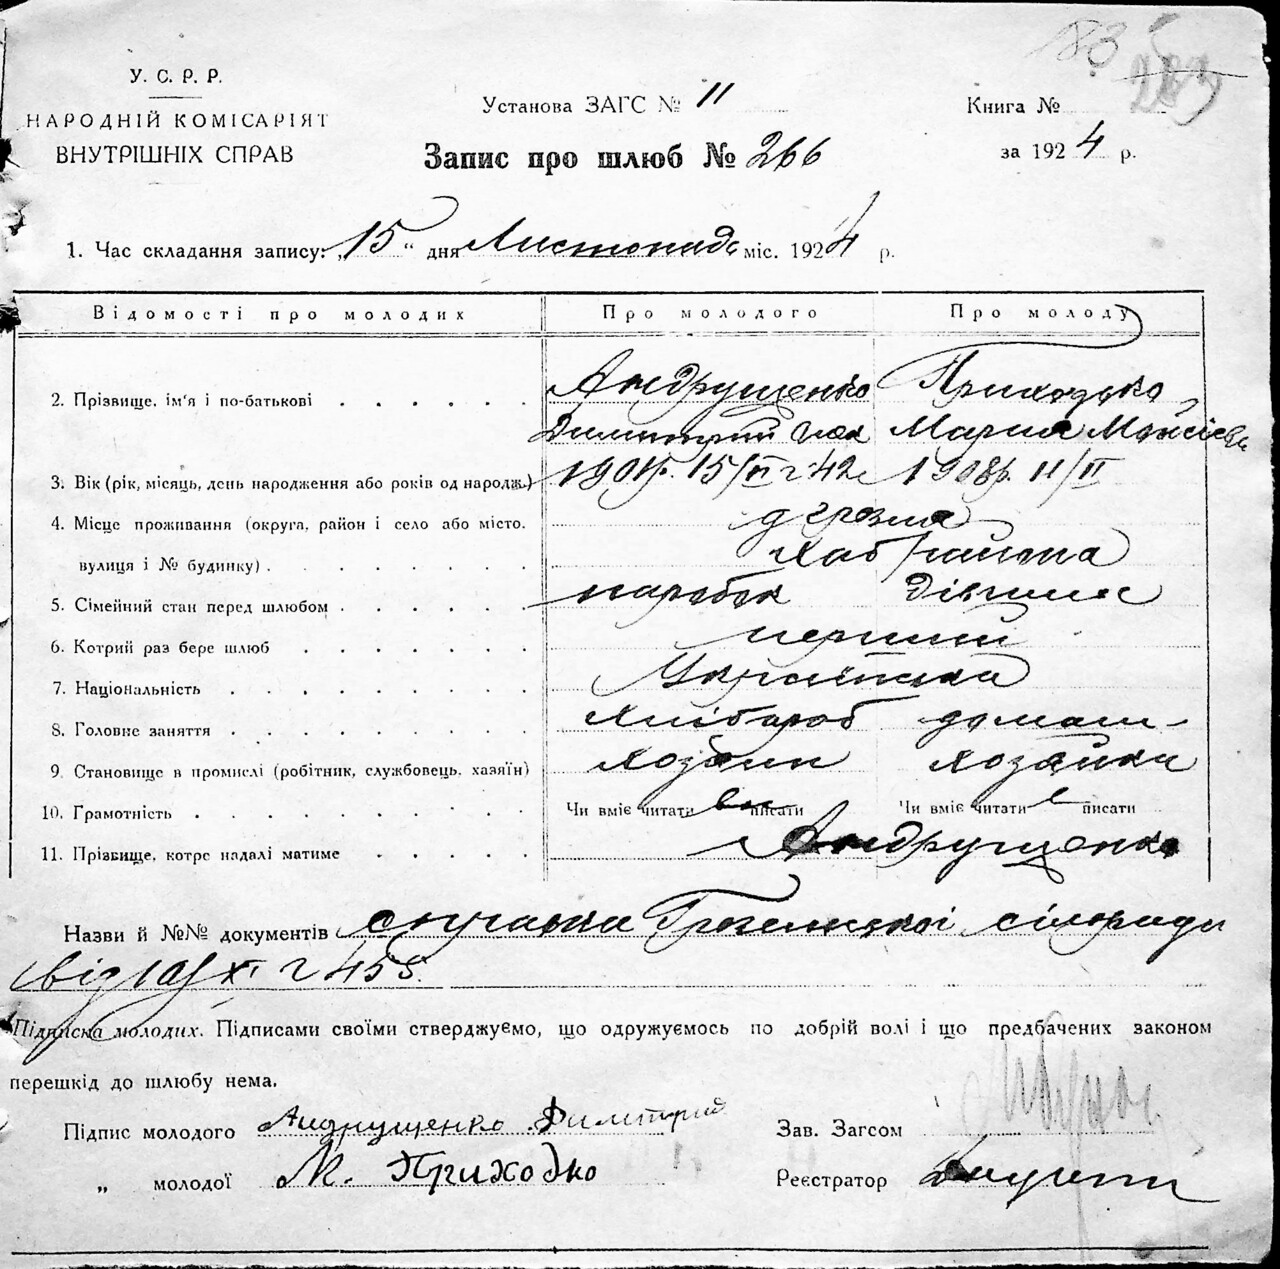 183
У. С. Р. Р.
НАРОДНІЙ КОМІСАРІЯТ
ВНУТРІШНІХ СПРАВ
Установа ЗАГС № 11
Книга №
Запис про шлюб № 266
за 1924 р.
1. Час складання запису: „15“ дня Листопада міс. 1924 р.
Відомості про молодих Про молодого Про молоду
2. Прізвище, ім'я і по-батькові Андрущенко Приходько
Димитрий Мария
3. Вік (рік, місяць, день народження або років од народж.) 1908р. 11/II
4. Місце проживання (округа, район і село або місто,
вулиця і № будинку)
5. Сімейний стан перед шлюбом паробок Дівчина
6. Котрий раз бере шлюб перший
7. Національність Українська
8. Головне заняття Хлібороб домаш-
9. Становище в промислі (робітник, службовець, хазяїн) Хозяин хозяйка
10. Грамотність Чи вміє читати писати Чи вміє читати писати
11. Прізвище, котре надалі матиме Андрущенко
Назви й №№ документів справка сілоради
від 10/XI 455.
Підписка молодих. Підписами своїми стверджуємо, що одружуємось по добрій волі і що предбачених законом
перешкід до шлюбу нема.
Підпис молодого Андрущенко Димитрий
Зав. Загсом
„ молодої М. Приходко
Реєстратор